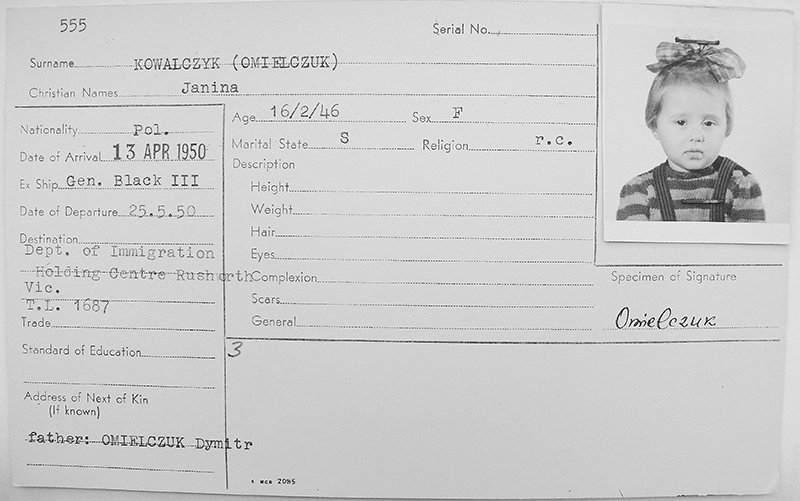 555
Serial No.
Surname KOWALCZYK (OMIELCZUK)
Christian Names Janina
Nationality Pol.
Date of Arrival 13 APR 1950
Ex Ship Gen. Black III
Date of Departure 25.5.50
Destination
Dept. of Immigration
Holding Centre Rushworth
Vic.
T.L. 1687
Trade
Standard of Education
Address of Next of Kin
(If known)
father: OMIELCZUK Dymitr
Age 16/2/46 Sex F
Marital State S Religion r.c.
Description
Height
Weight
Hair
Eyes
Complexion
Scars
General
3
Specimen of Signature
Omielczuk